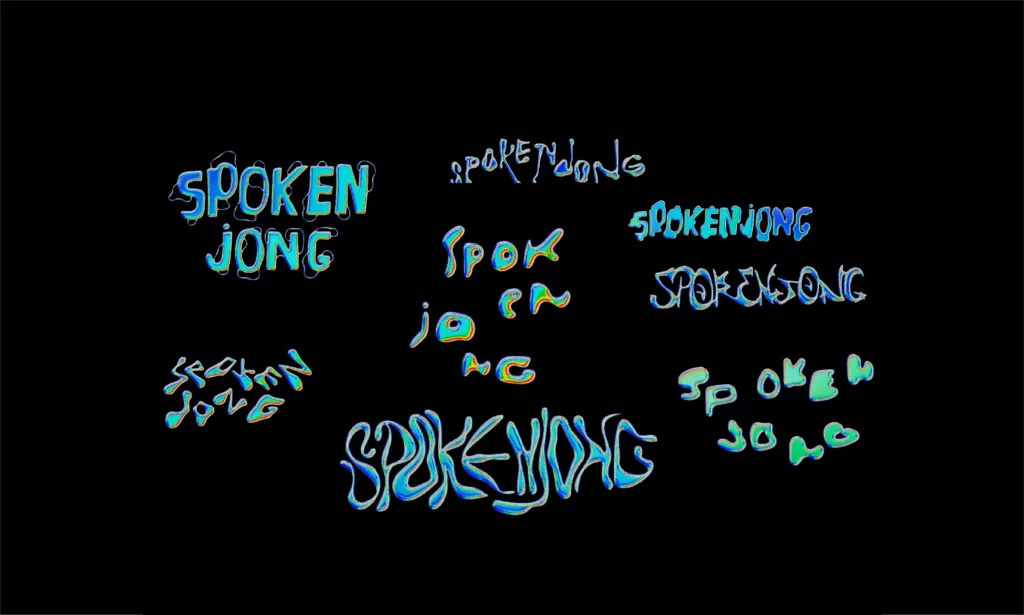 SPOKEN
JONG
SPOKENJONG
SPOKENJONG
SPOK
EN
JO
NG
SPOKENJONG
SPOKEN
JONG
SPOKEN
JONG
SPOKENJONG